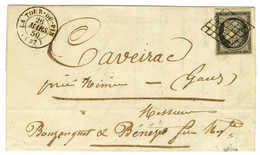 LA TOUR-DU-PIN
26
MARS
50
(37)
Caveirac
près Nîmes Gard
Messieurs
Bouzanquet & Bénézet fils Négts